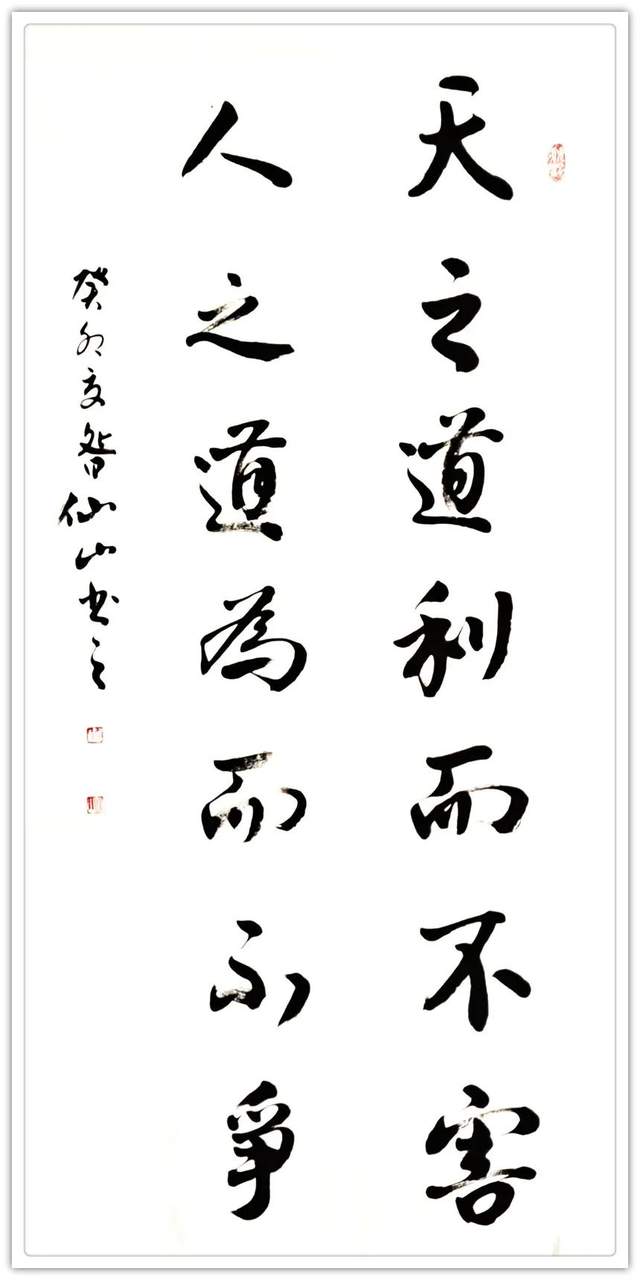 天之道利而不害
人之道為而不爭
癸卯夏智仙山書之